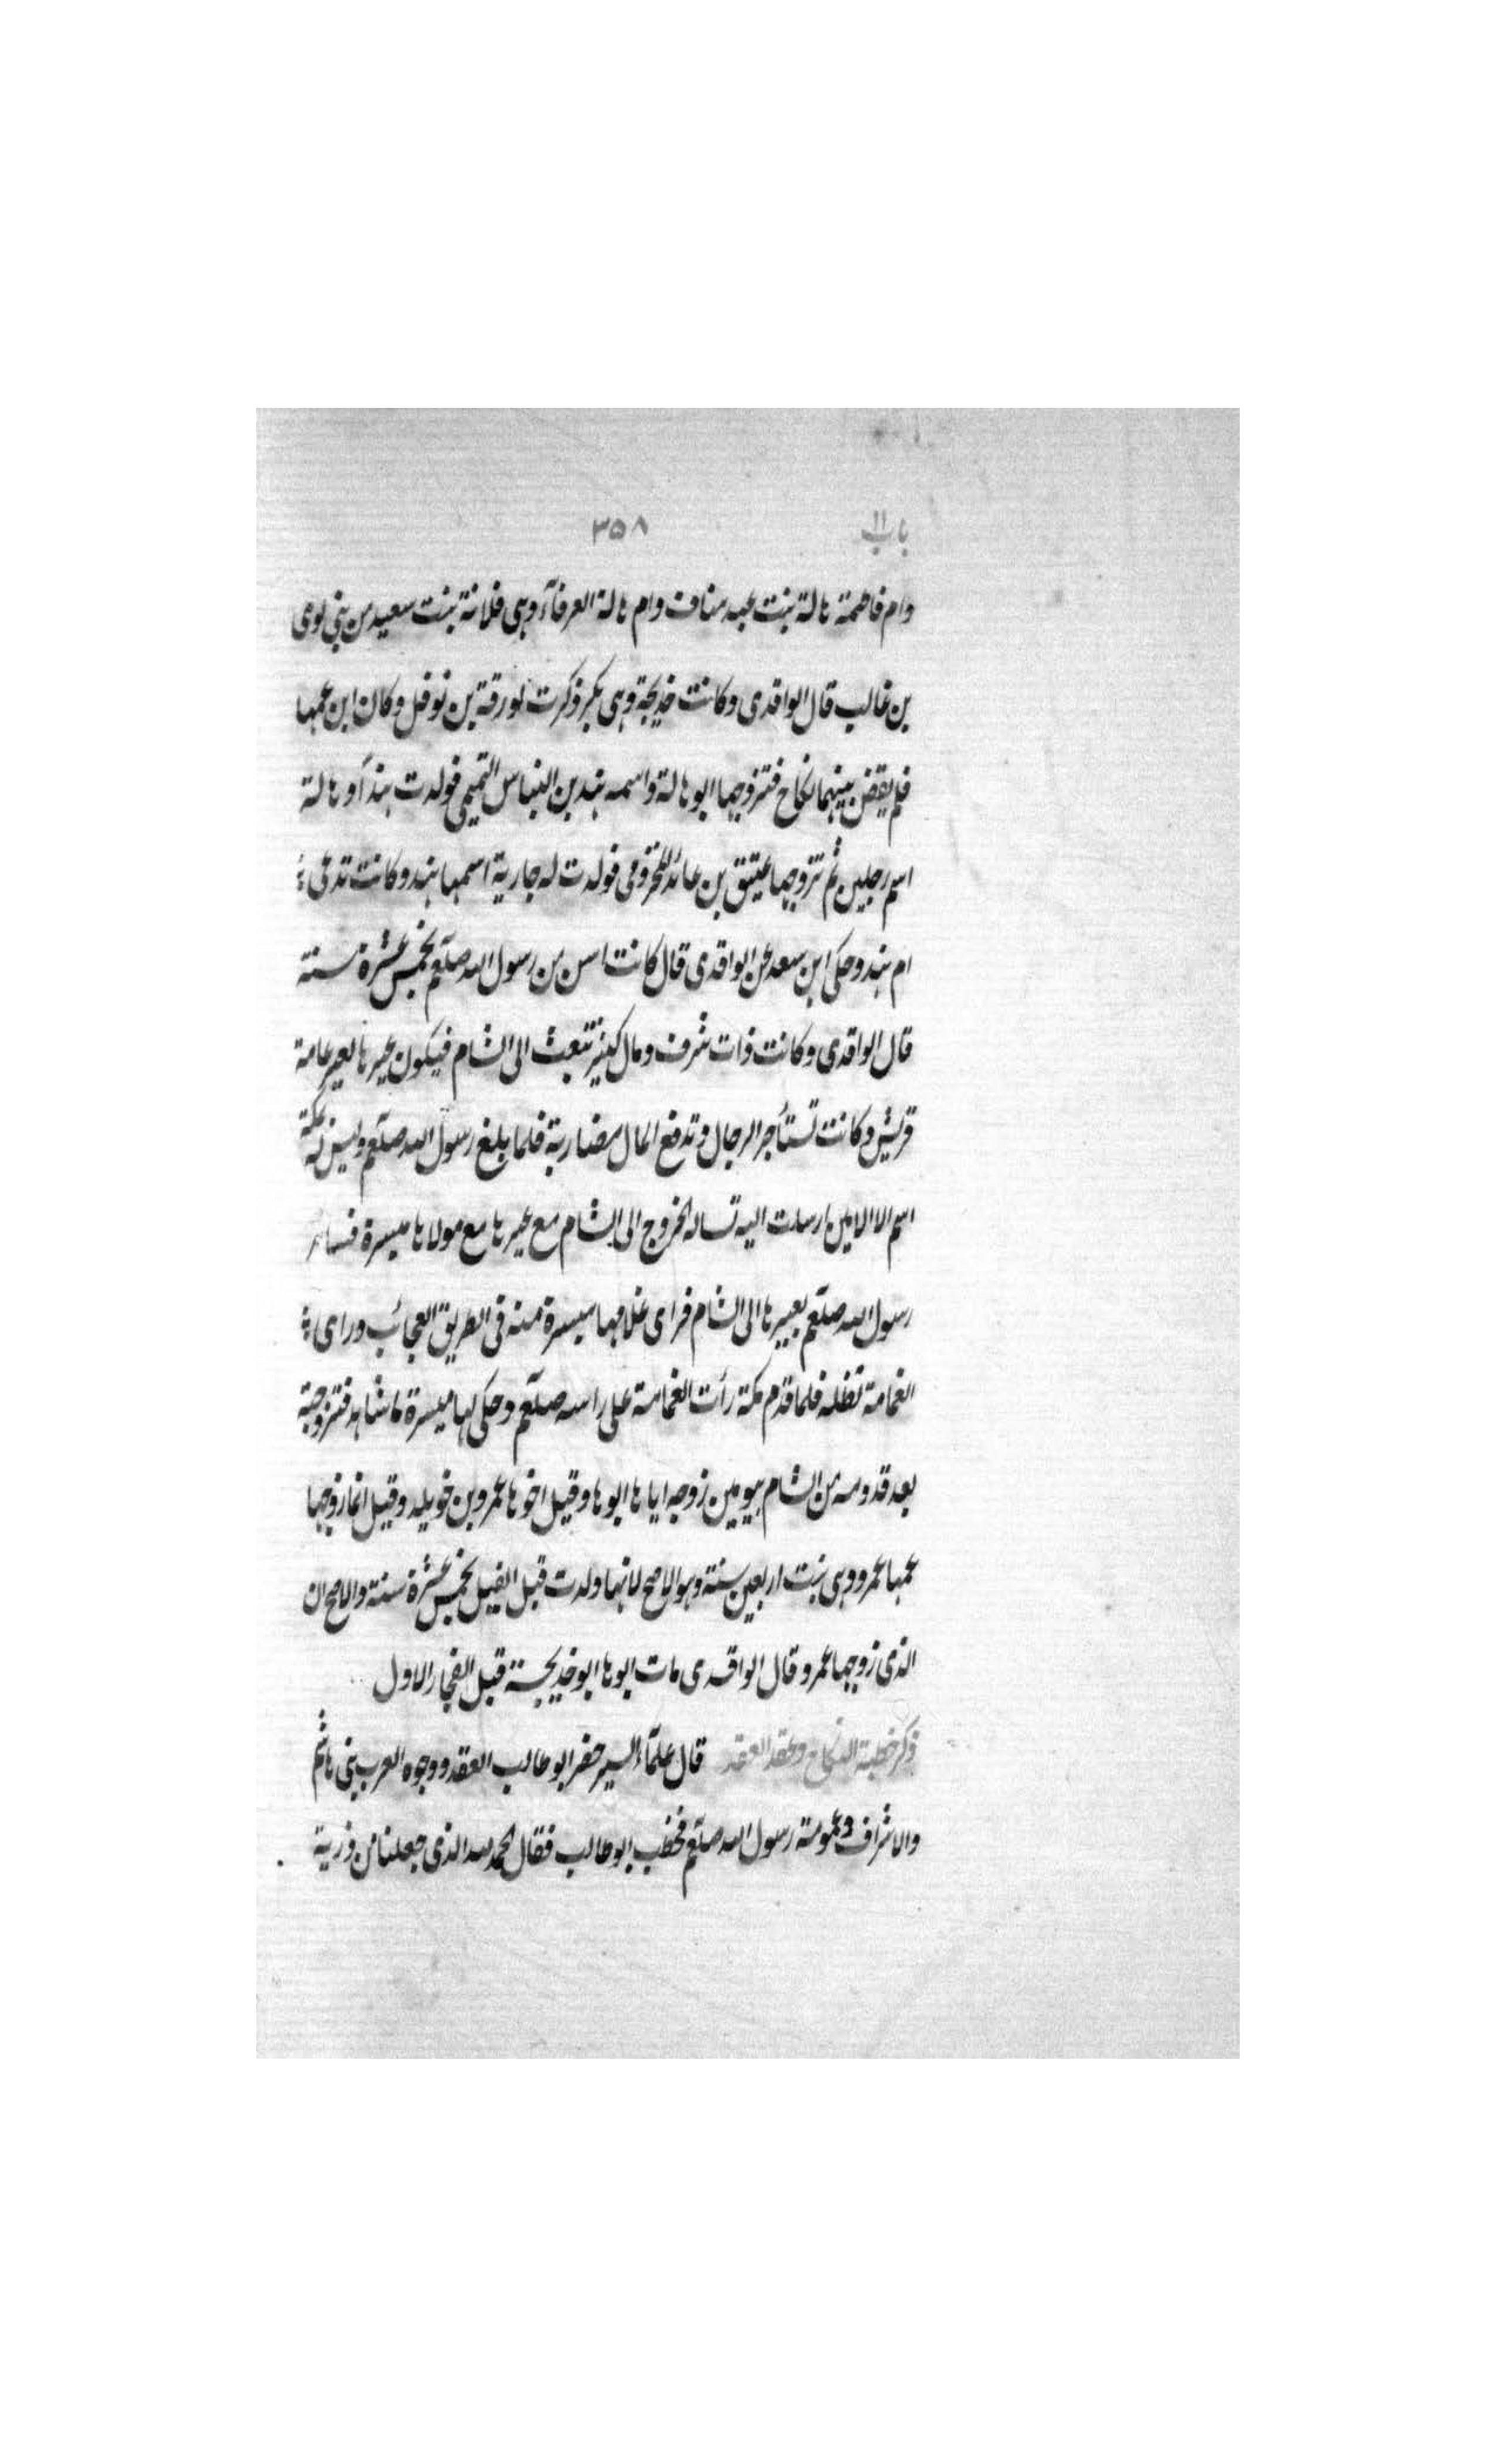 باب ١١ ٣٥٨
وام فاطمة هالة بنت عبد مناف وام هالة العرقآء وهى فلانة بنت سعيد من بنى لوى
بن غالب قال الواقدى وكانت خديجة وهى بكر ذكرت لورقة بن نوفل وكان ابن عمها
فلم يقض بينهما نكاح فتزوجها ابو هالة واسمه هند بن النباس التميمى فولدت هنداً وهالة
اسم رجلين ثم تزوجها عتيق بن عائذ المخزومى فولدت له جارية اسمها هند وكانت تدعى
ام هند وحكى ابن سعد عن الواقدى قال كانت اسن من رسول الله صلعم بخمس عشرة سنة
قال الواقدى وكانت ذات شرف ومال كثير تبعث الى الشام فيكون عيرها كعير عامة
قريش وكانت تستأجر الرجال وتدفع المال مضاربة فلما بلغ رسول الله صلعم وليس له بمكة
اسم الا الامين ارسلت اليه تساله الخروج الى الشام مع عيرها مع مولاها ميسرة فسافر
رسول الله صلعم بعيرها الى الشام فراى غلامها ميسرة منه فى الطريق العجائب وراى
الغمامة تظله فلما قدم مكة رأت الغمامة على راسه صلعم وحكى لها ميسرة ما شاهد فتزوجته
بعد قدومه من الشام بيومين زوجه اياها ابوها وقيل اخوها عمرو بن خويلد وقيل انما زوجها
عمها عمرو وهى بنت اربعين سنة وهو الاصح لانها ولدت قبل الفيل بخمس عشرة سنة والاصح ان
الذى زوجها عمرو قال الواقدى مات ابوها ابو خديجة قبل الفجار الاول
ذكر خطبة النكاح وعقد العقد قال علمآء السير حضر ابو طالب العقد ووجوه العرب بنى هاشم
والاشراف وعمومة رسول الله صلعم فخطب ابو طالب فقال الحمد لله الذى جعلنا من ذرية